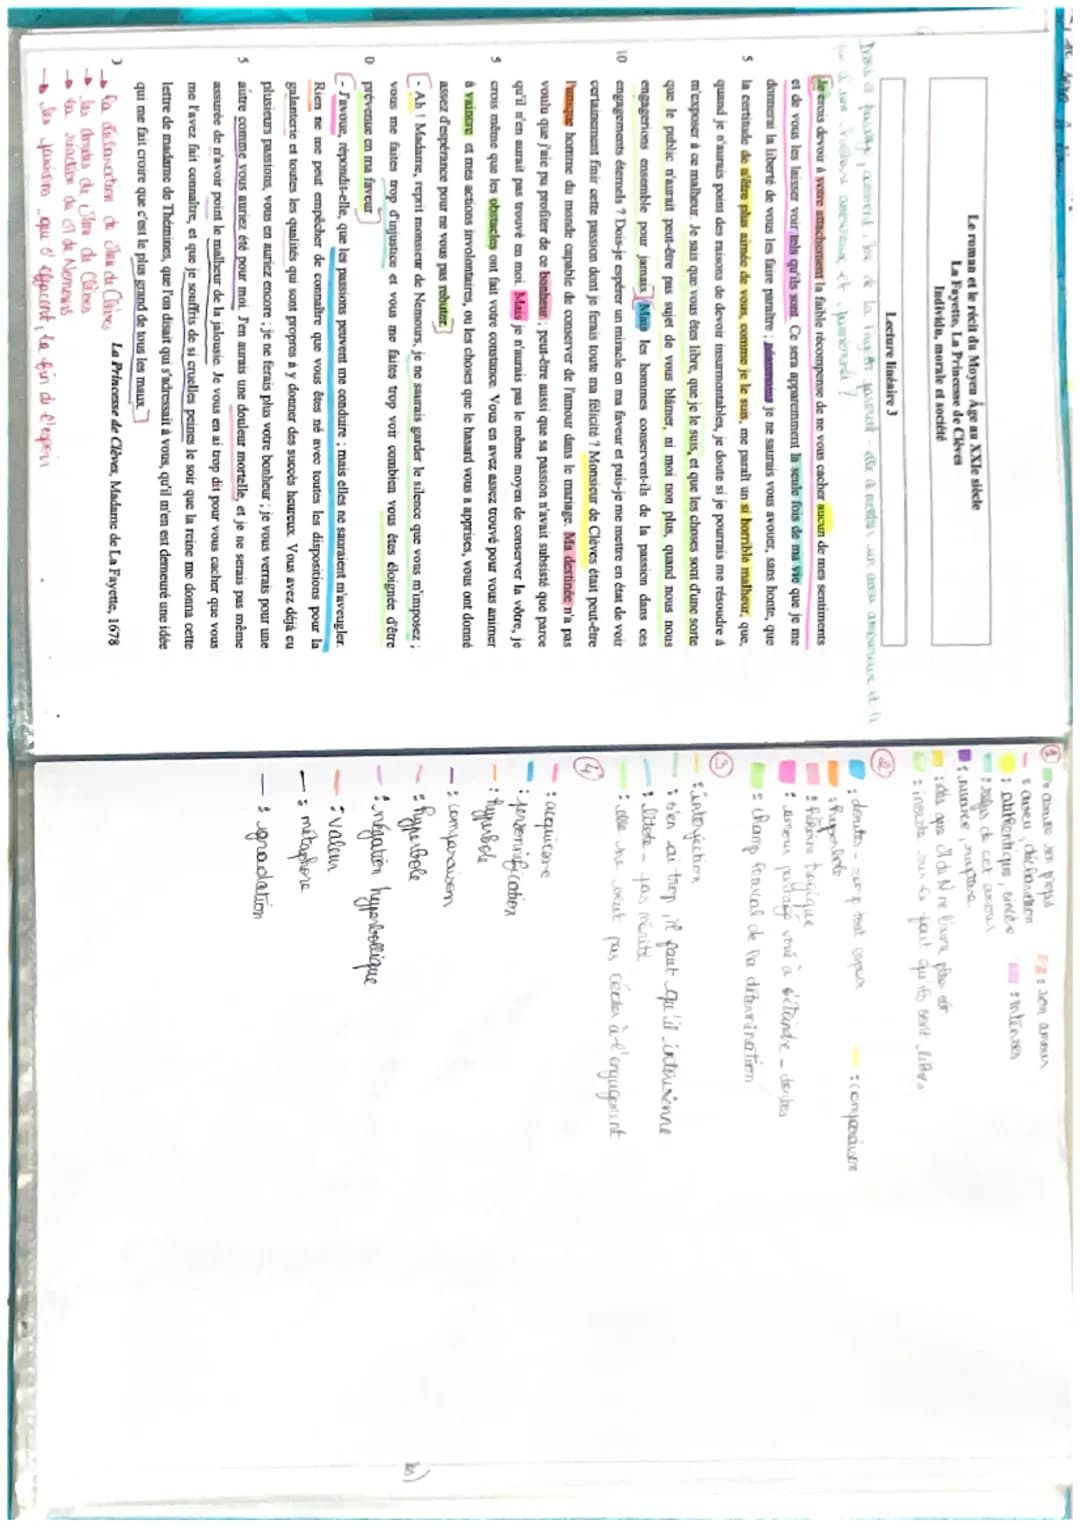 Le roman et le récit du Moyen Âge au XXIe siècle
La Fayette, La Princesse de Clèves
Individu, morale et société
Lecture linéaire 3
Je crois devoir à votre attachement la faible récompense de ne vous cacher aucun de mes sentiments
et de vous les laisser voir tels qu'ils sont. Ce sera apparemment la seule fois de ma vie que je me
donnerai la liberté de vous les faire paraître ; néanmoins je ne saurais vous avouer, sans honte, que
5 la certitude de n'être plus aimée de vous, comme je le suis, me paraît un si horrible malheur, que,
quand je n'aurais point des raisons de devoir insurmontables, je doute si je pourrais me résoudre à
m'exposer à ce malheur. Je sais que vous êtes libre, que je le suis, et que les choses sont d'une sorte
que le public n'aurait peut-être pas sujet de vous blâmer, ni moi non plus, quand nous nous
engagerions ensemble pour jamais. Mais les hommes conservent-ils de la passion dans ces
10 engagements éternels ? Dois-je espérer un miracle en ma faveur et puis-je me mettre en état de voir
certainement finir cette passion dont je ferais toute ma félicité ? Monsieur de Clèves était peut-être
l'unique homme du monde capable de conserver de l'amour dans le mariage. Ma destinée n'a pas
voulu que j'aie pu profiter de ce bonheur ; peut-être aussi que sa passion n'avait subsisté que parce
qu'il n'en aurait pas trouvé en moi. Mais je n'aurais pas le même moyen de conserver la vôtre, je
5 crois même que les obstacles ont fait votre constance. Vous en avez assez trouvé pour vous animer
à vaincre et mes actions involontaires, ou les choses que le hasard vous a apprises, vous ont donné
assez d'espérance pour ne vous pas rebuter.
- Ah ! Madame, reprit monsieur de Nemours, je ne saurais garder le silence que vous m'imposez ;
vous me faites trop d'injustice et vous me faites trop voir combien vous êtes éloignée d'être
0 prévenue en ma faveur
- J'avoue, répondit-elle, que les passions peuvent me conduire ; mais elles ne sauraient m'aveugler.
Rien ne me peut empêcher de connaître que vous êtes né avec toutes les dispositions pour la
galanterie et toutes les qualités qui sont propres à y donner des succès heureux. Vous avez déjà eu
plusieurs passions, vous en auriez encore ; je ne ferais plus votre bonheur ; je vous verrais pour une
5 autre comme vous auriez été pour moi. J'en aurais une douleur mortelle, et je ne serais pas même
assurée de n'avoir point le malheur de la jalousie. Je vous en ai trop dit pour vous cacher que vous
me l'avez fait connaître, et que je souffris de si cruelles peines le soir que la reine me donna cette
lettre de madame de Thémines, que l'on disait qui s'adressait à vous, qu'il m'en est demeuré une idée
qui me fait croire que c'est le plus grand de tous les maux.
La Princesse de Clèves, Madame de La Fayette, 1678
→ la déclaration de Mme de Clèves
→ les doutes de Mme de Clèves
→ la réaction du M de Nemours
→ les passions qui s'effacent, la fin de l'espoir
①
: aveu, déclaration
: son amour
: authentique, sincère
: intenses
: cet amour
: nuance, rupture
: insiste sur le fait qu'ils sont libres
②
: doutes
: comparaison
: hyperbole
: héroïne tragique
: amour partagé voué à s'éteindre - doutes
: champ lexical de la détermination
③
: interjection
: s'en ai trop, il faut qu'il intervienne
: litote - pas mérité
: elle ne veut pas céder à l'engagement
④
: acquiesce
: personnification
: hyperbole
: comparaison
: hyperbole
: négation hyperbolique
: valeur
: métaphore
: gradation